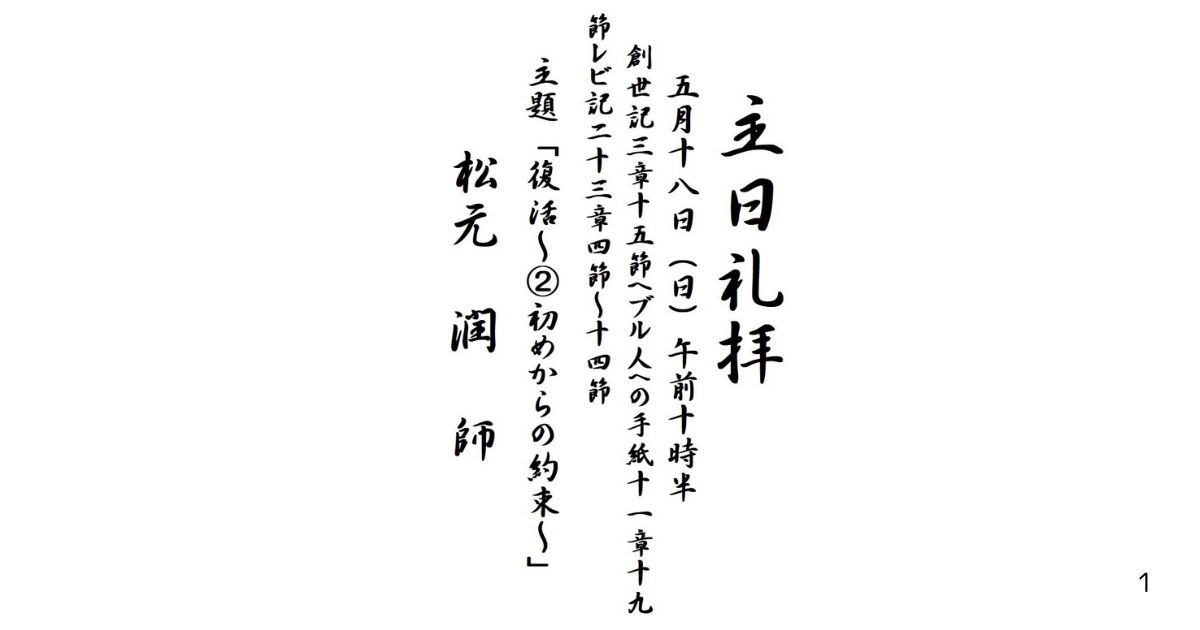 主日礼拝
五月十八日（日）午前十時半
創世記三章十五節へブル人への手紙十一章十九
節レビ記二十三章四節～十四節
主題「復活～②初めからの約束～」
松元　潤　師
1